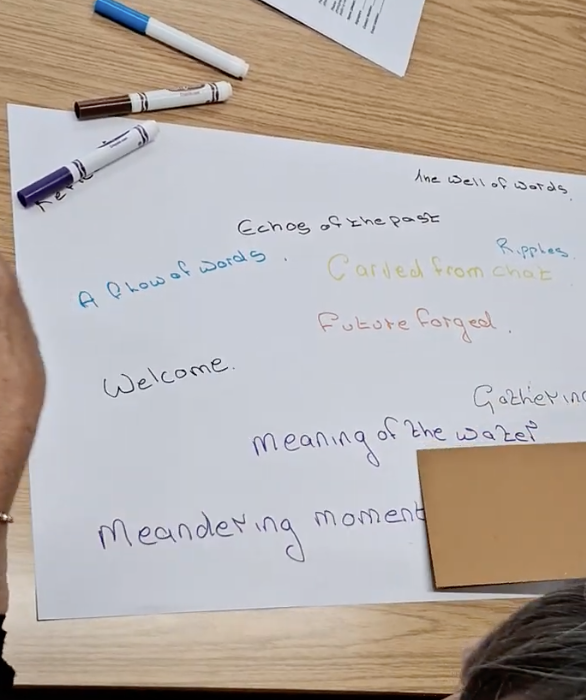 The Well of words.
Echos of the past
Ripples.
A flow of words.
Carved from chat
Future forged.
Welcome.
Gathering
Meaning of the water
Meandering moment